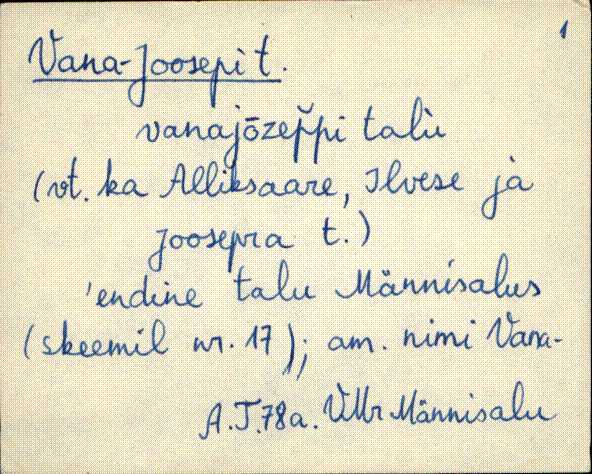 1
Vana-Joosepi t.
vanajōzep̆pi talù
(vt. ka Alliksaare, Ilvese ja
Joosepra t.)
'endine talu Männisalus
(skeemil nr. 17); am. nimi Vana-
A.T.78a. VMr Männisalu